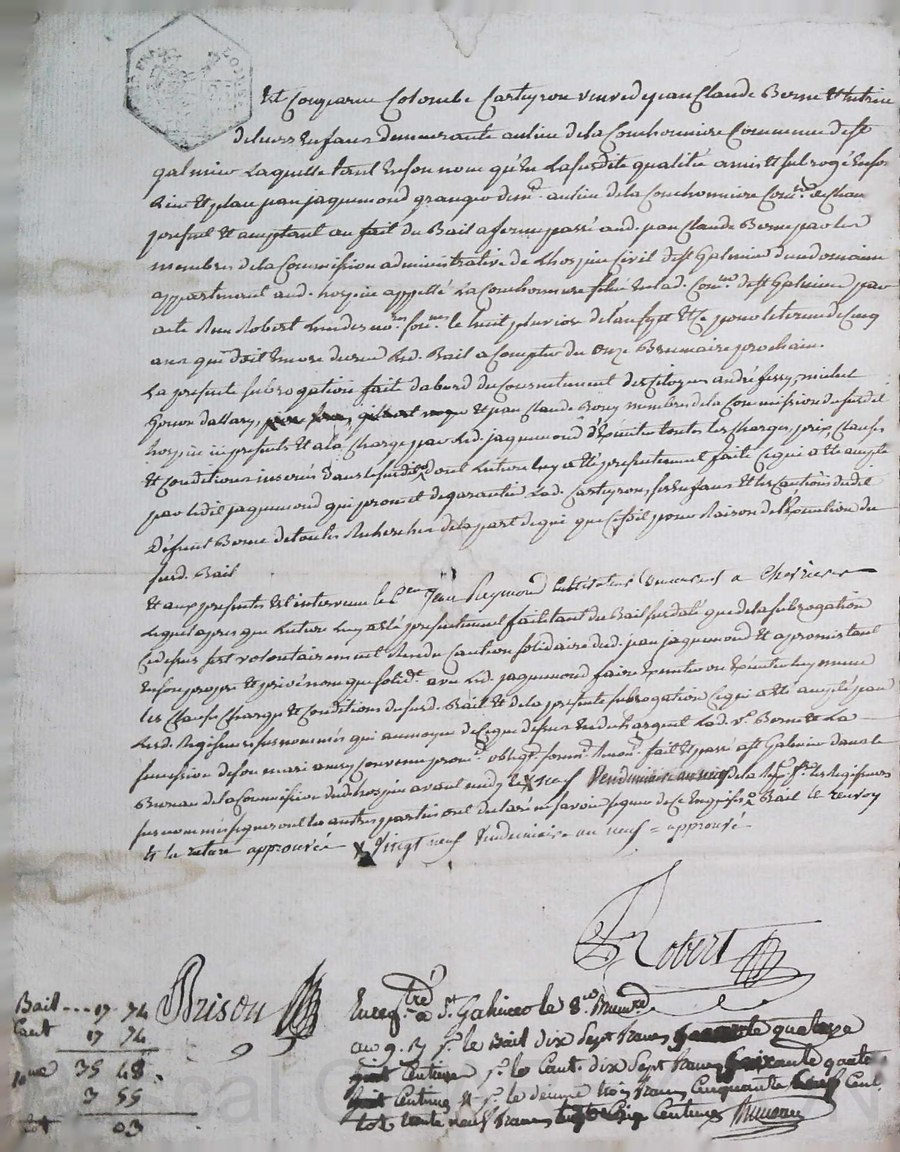 Est Comparue Colombe Carteyron veuve de jean Claude Borne Et tutrice
de leurs Enfans demeurante au lieu de la Conchonniere Commune de st
galmier Laquelle tant En son nom qu'En La susdite qualité a mis Et subrogé En son
Lieu Et place jean jaquemond granger dem.t au lieu de la Conchonniere Com.ne de
present Et acceptant au fait du Bail a ferme passé aud. jean Claude Borne par les
membres de la Commission administrative de L'hospice Civil de st Galmier du domaine
appartenant aud. hospice appellé La Conchonniere situé En lad. Com.ne de st Galmier par
acte Reçu Robert L'un des no.res le huit pluviose de l'an sept Et Ce pour le terme de Cinq
ans qui doit Encore durer Led. Bail a Compter du onze Brumaire prochain.
La presente subrogation fait d'abord du Consentement des Citoyens andré ferry, michel
et jean Claude Bory membres de la Commission du susdit
hospice ici presents Et a la Charge par Led. jaquemond d'Executer toutes les Charges, prix, Clauses
Et Conditions inserés dans le susdit dont Lecture luy a été presentement faite Ce qui a été accepté
par ledit jaquemond qui promet de garantir Lad. Carteyron, ses Enfans Et les Cautions dudit
Défunt Borne de toutes Recherches de la part de qui que Ce soit pour Raison de l'Execution du
susd. Bail
Et aux presentes Est intervenu le C.en Jean Reymond
Lequel apres que Lecture Luy a été presentement fait tant du Bail susdaté que de la subrogation
Ci dessus s'est volontairement Rendu Caution solidaire dud. jean jaquemond Et a promis tant
En son propre Et privé nom que solid.t avec Led. jaquemond faire Executer ou Executer luy meme
les Clauses Charges Et Conditions du susd. Bail Et de la presente subrogation Ce qui a été accepté par
Les d. Regisseurs susnommés qui au moyen de Ce que dessus En dechargent Lad. v.e Borne Et La
succession de son mari ainsy Convenu fait Et passé a st Galmier dans le
Bureau de la Commission dud. hospice avant midy le Vendemiaire an neuf de la Rep. les Regisseurs
susnommés signeront les autres parties ont declaré ne savoir signer de Ce Enquises Bail le renvoy
Et la rature approuvée x Vingt neuf Vendemiaire an neuf = approuvé
Robert
Brison
Bail .... 17 74
Caut 17 74
35 48
3 55
tot 03
Enreg.tré a S.t Galmier le 8.
an 9. R p.r le Bail dix Sept francs quatorze
Centimes p.r le Caut. dix Sept francs Soixante quatorze
Centimes & p.r le deuxme trois francs Cinquante Cent.
tot trente neuf francs Centimes